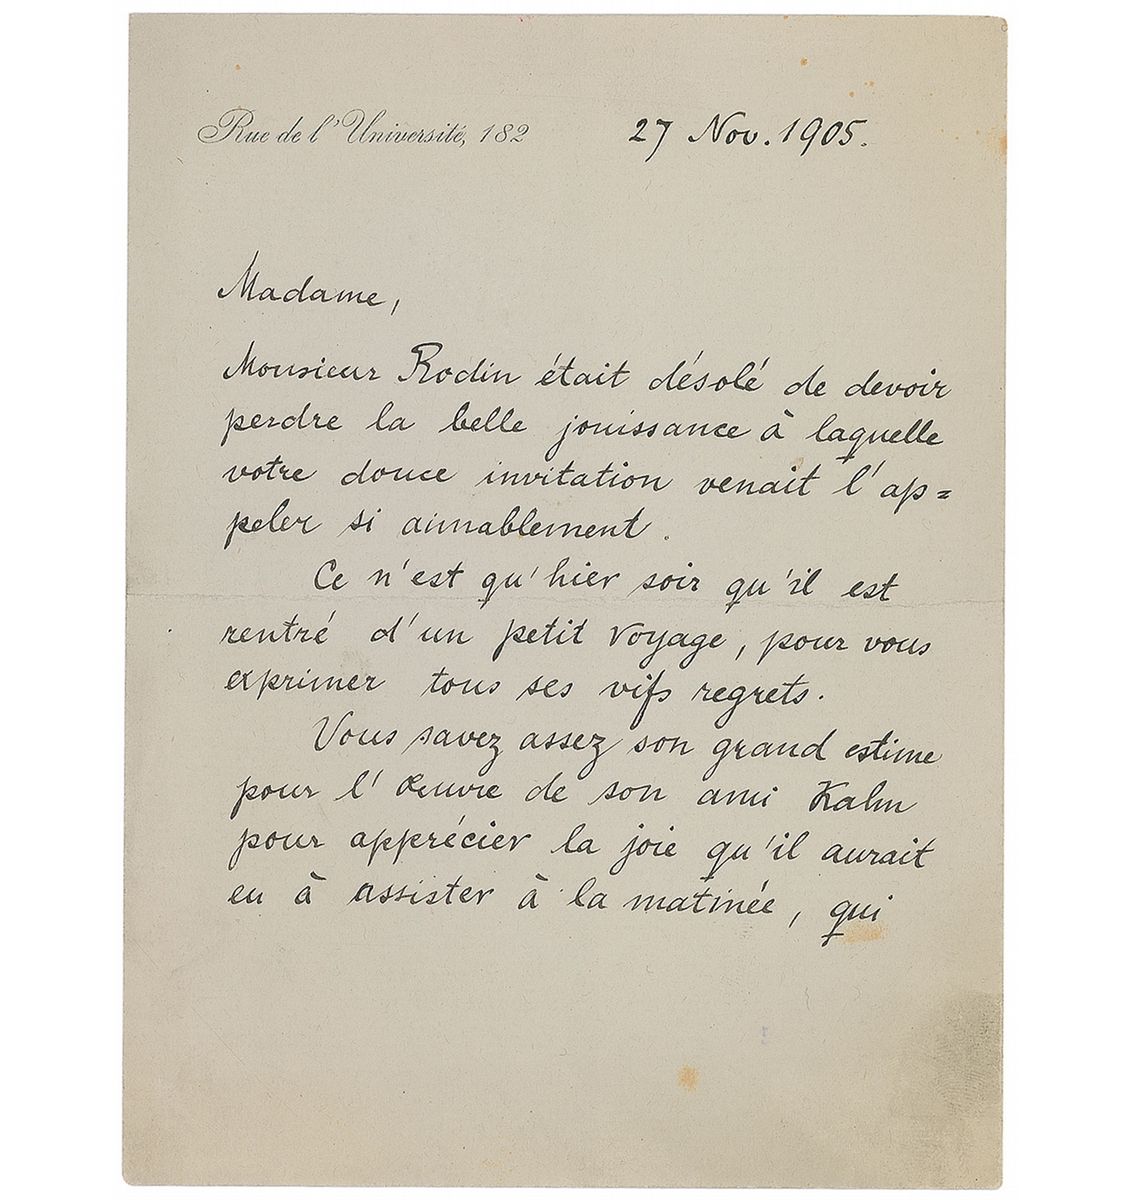 Rue de l'Université, 182
27 Nov. 1905.
Madame,
Monsieur Rodin était désolé de devoir
perdre la belle jouissance à laquelle
votre douce invitation venait l'ap=
peler si aimablement.
Ce n'est qu'hier soir qu'il est
rentré d'un petit voyage, pour vous
exprimer tous ses vifs regrets.
Vous savez assez son grand estime
pour l'Œuvre de son ami Kahn
pour apprécier la joie qu'il aurait
eu à assister à la matinée, qui